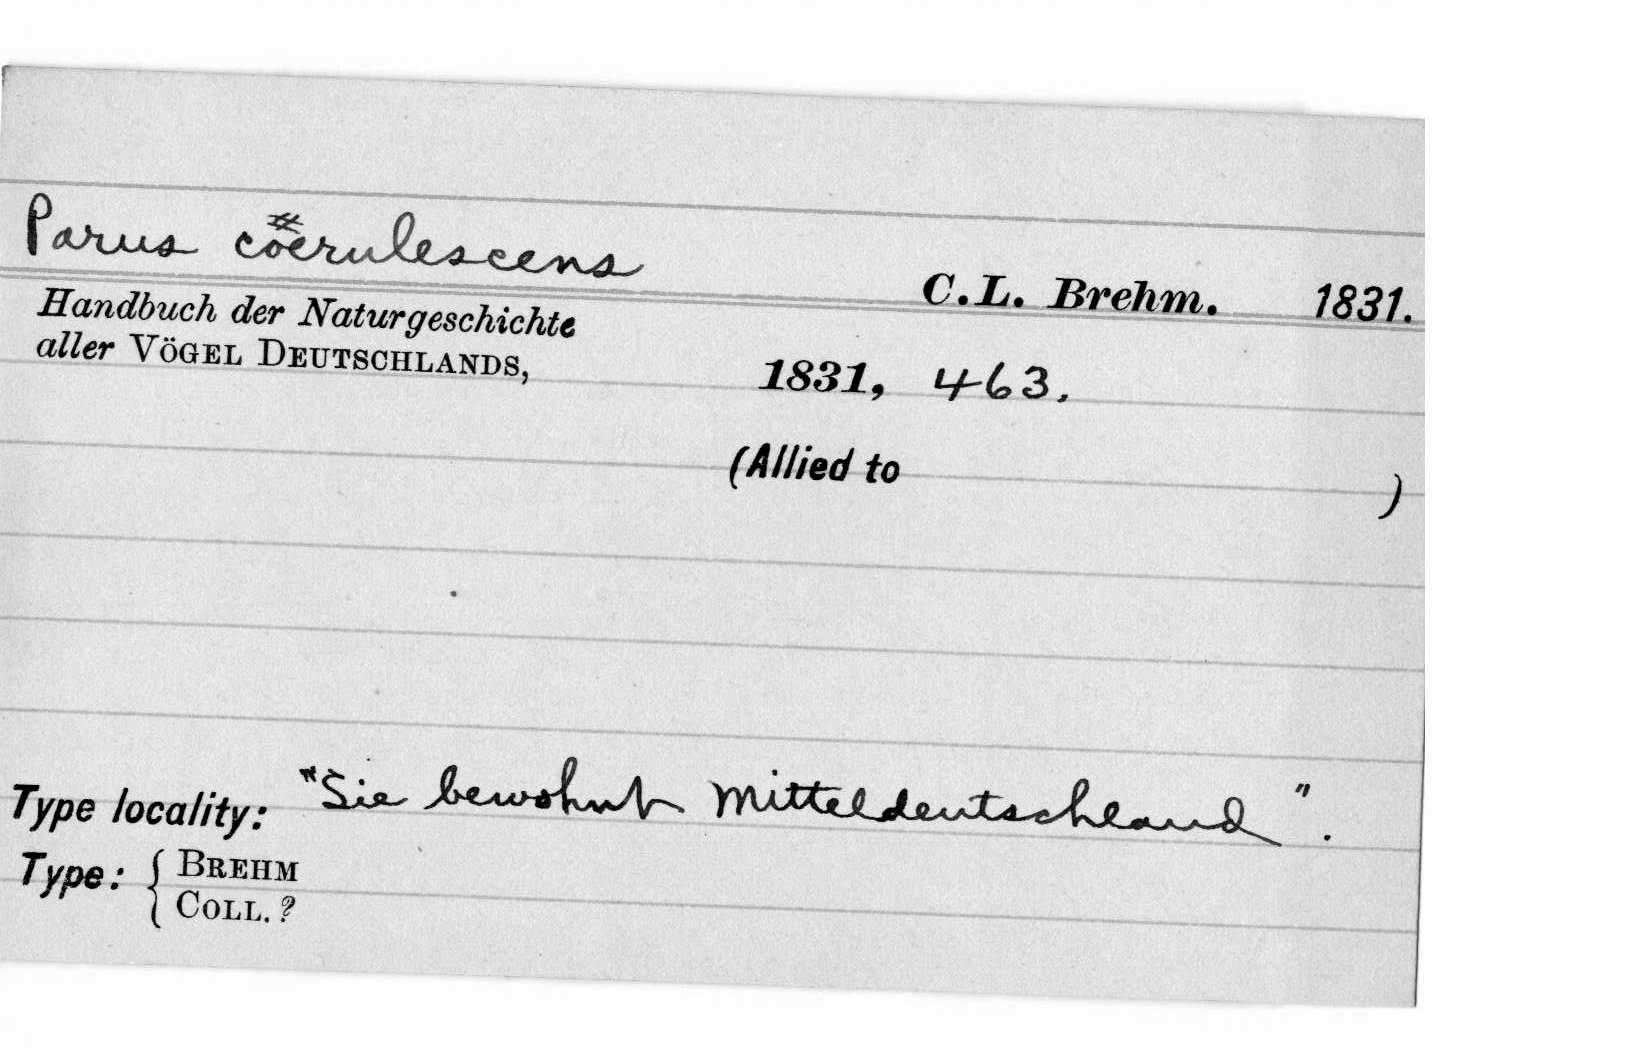 Parus coerulescens
C.L. Brehm. 1831.
Handbuch der Naturgeschichte
aller VÖGEL DEUTSCHLANDS,
1831, 463.
(Allied to )
Type locality: "Sie bewohnt Mitteldeutschland".
Type: { BREHM
COLL. ?